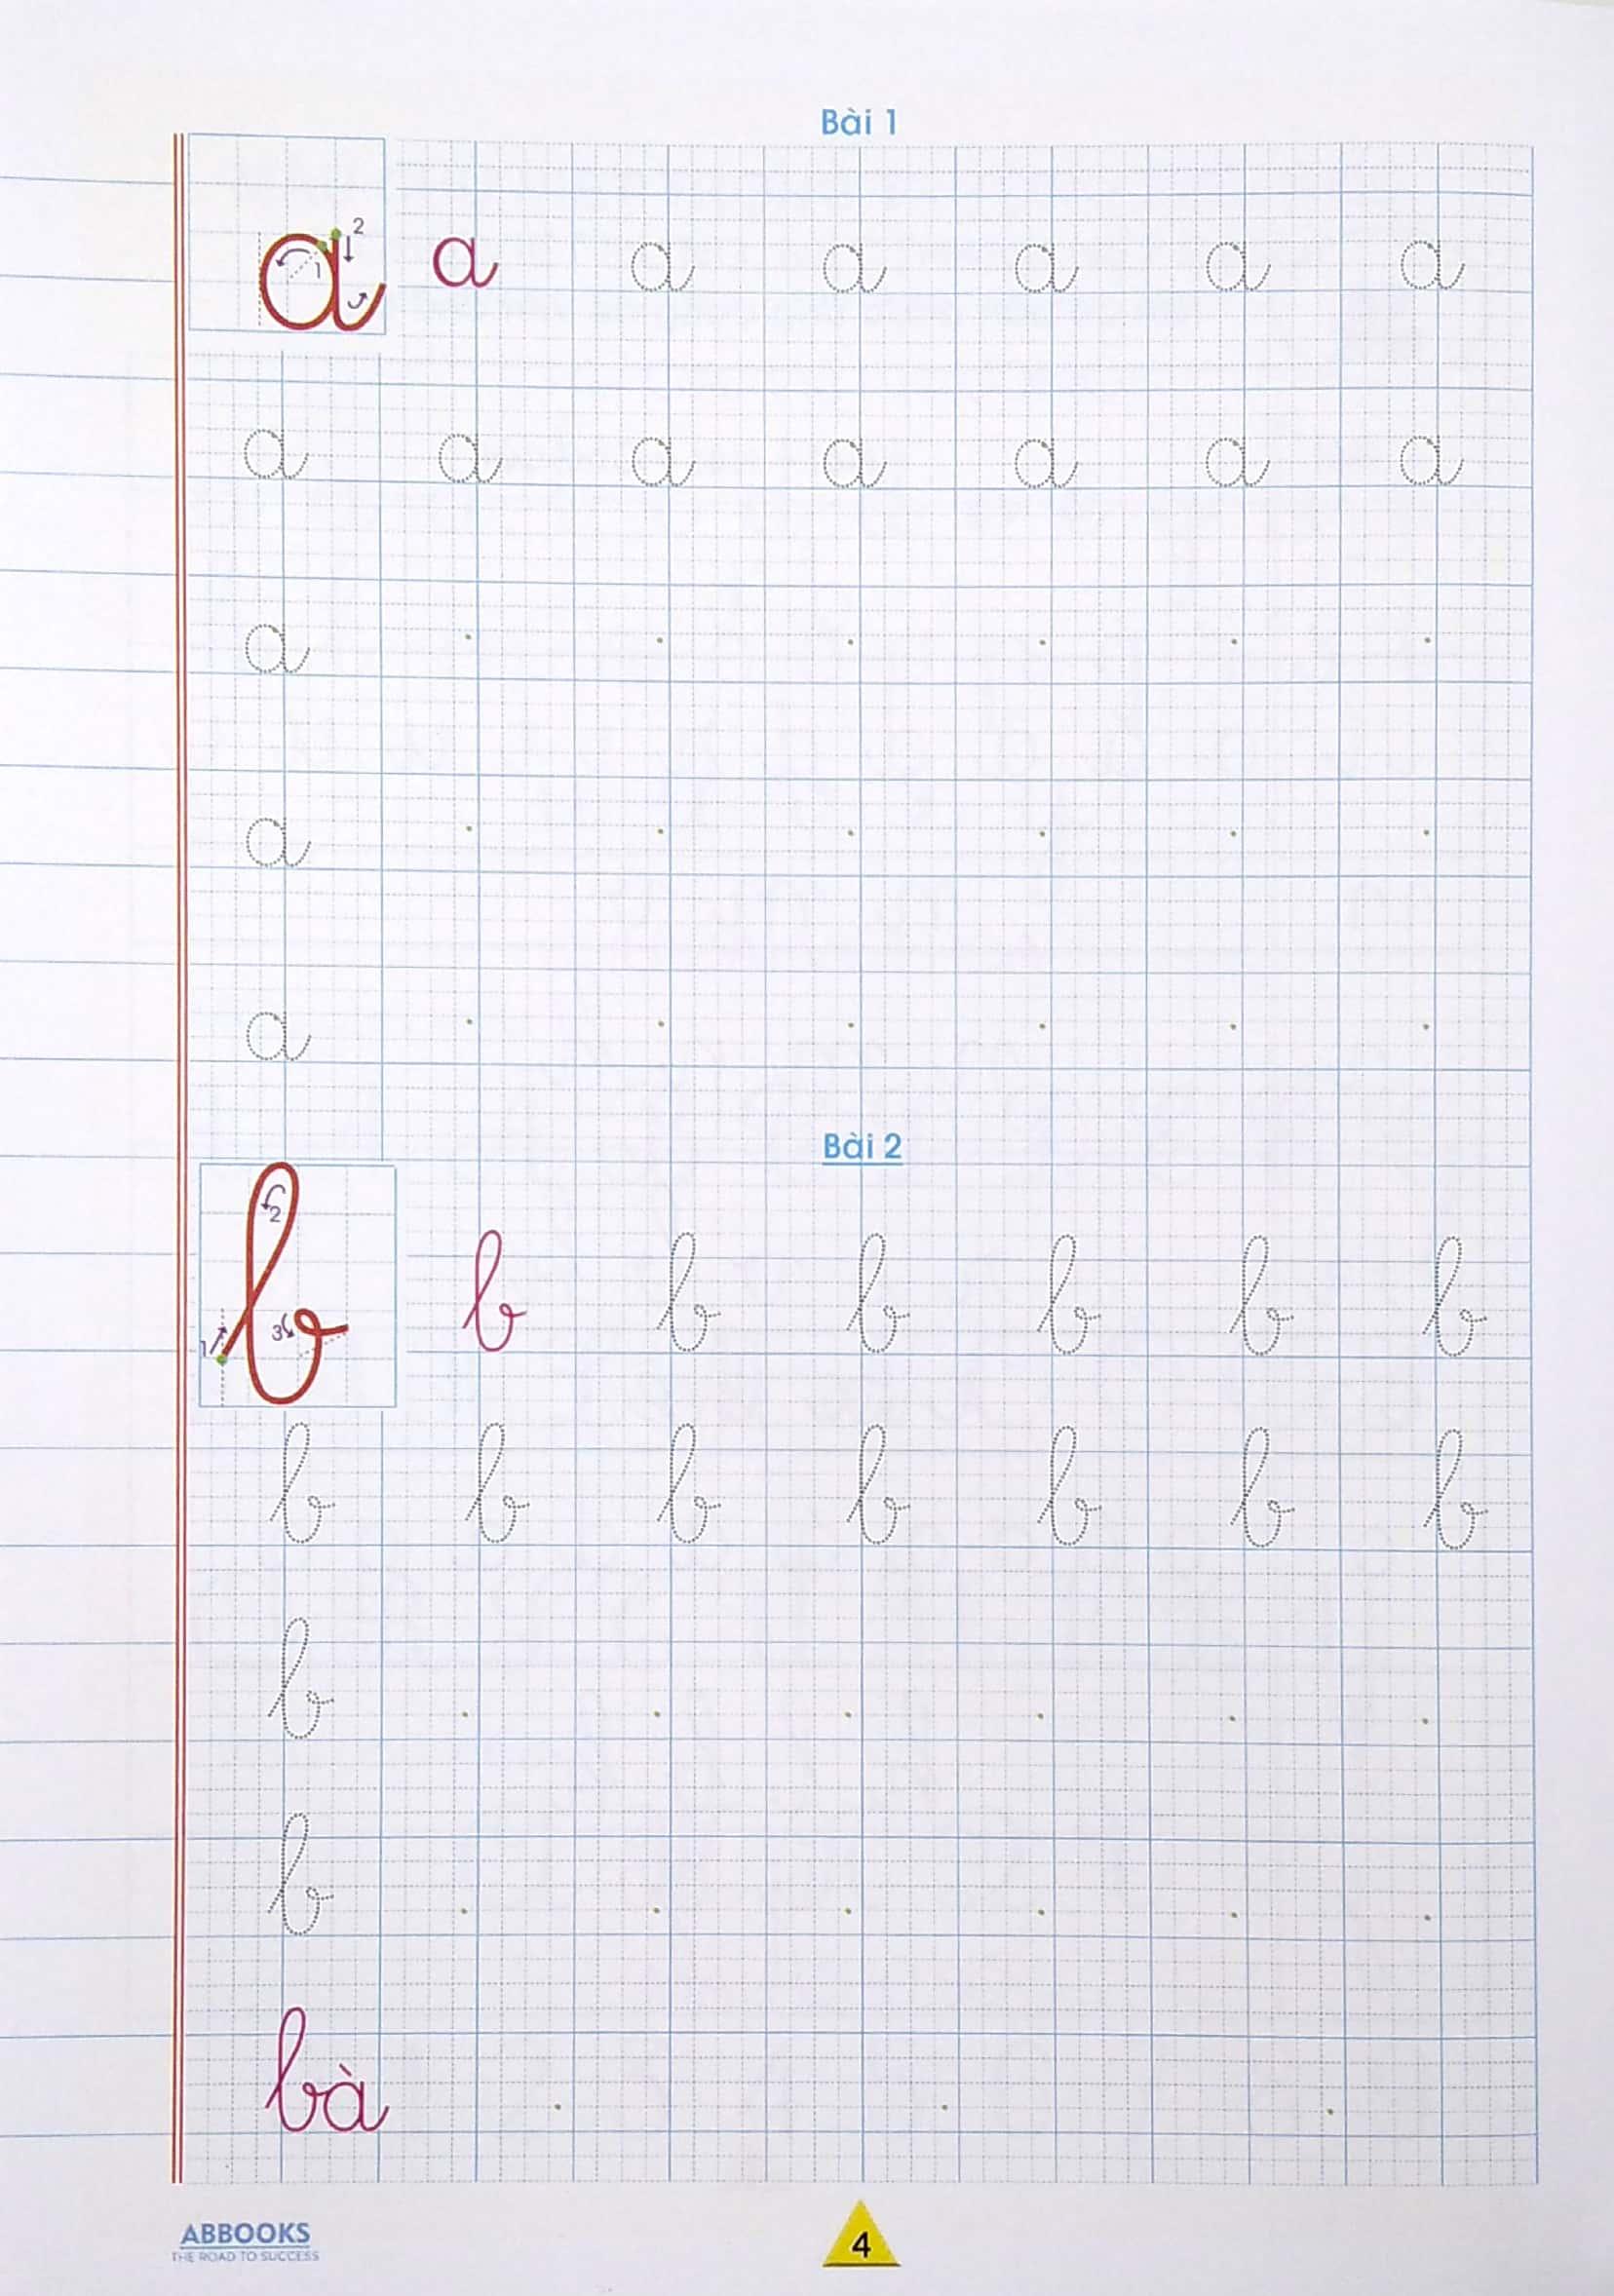 Bài 1
2
1
a a a a a a a
a a a a a a a
a
a
a
Bài 2
2
3
1
b b b b b b b
b b b b b b b
b
b
bà
ABBOOKS
THE ROAD TO SUCCESS
4